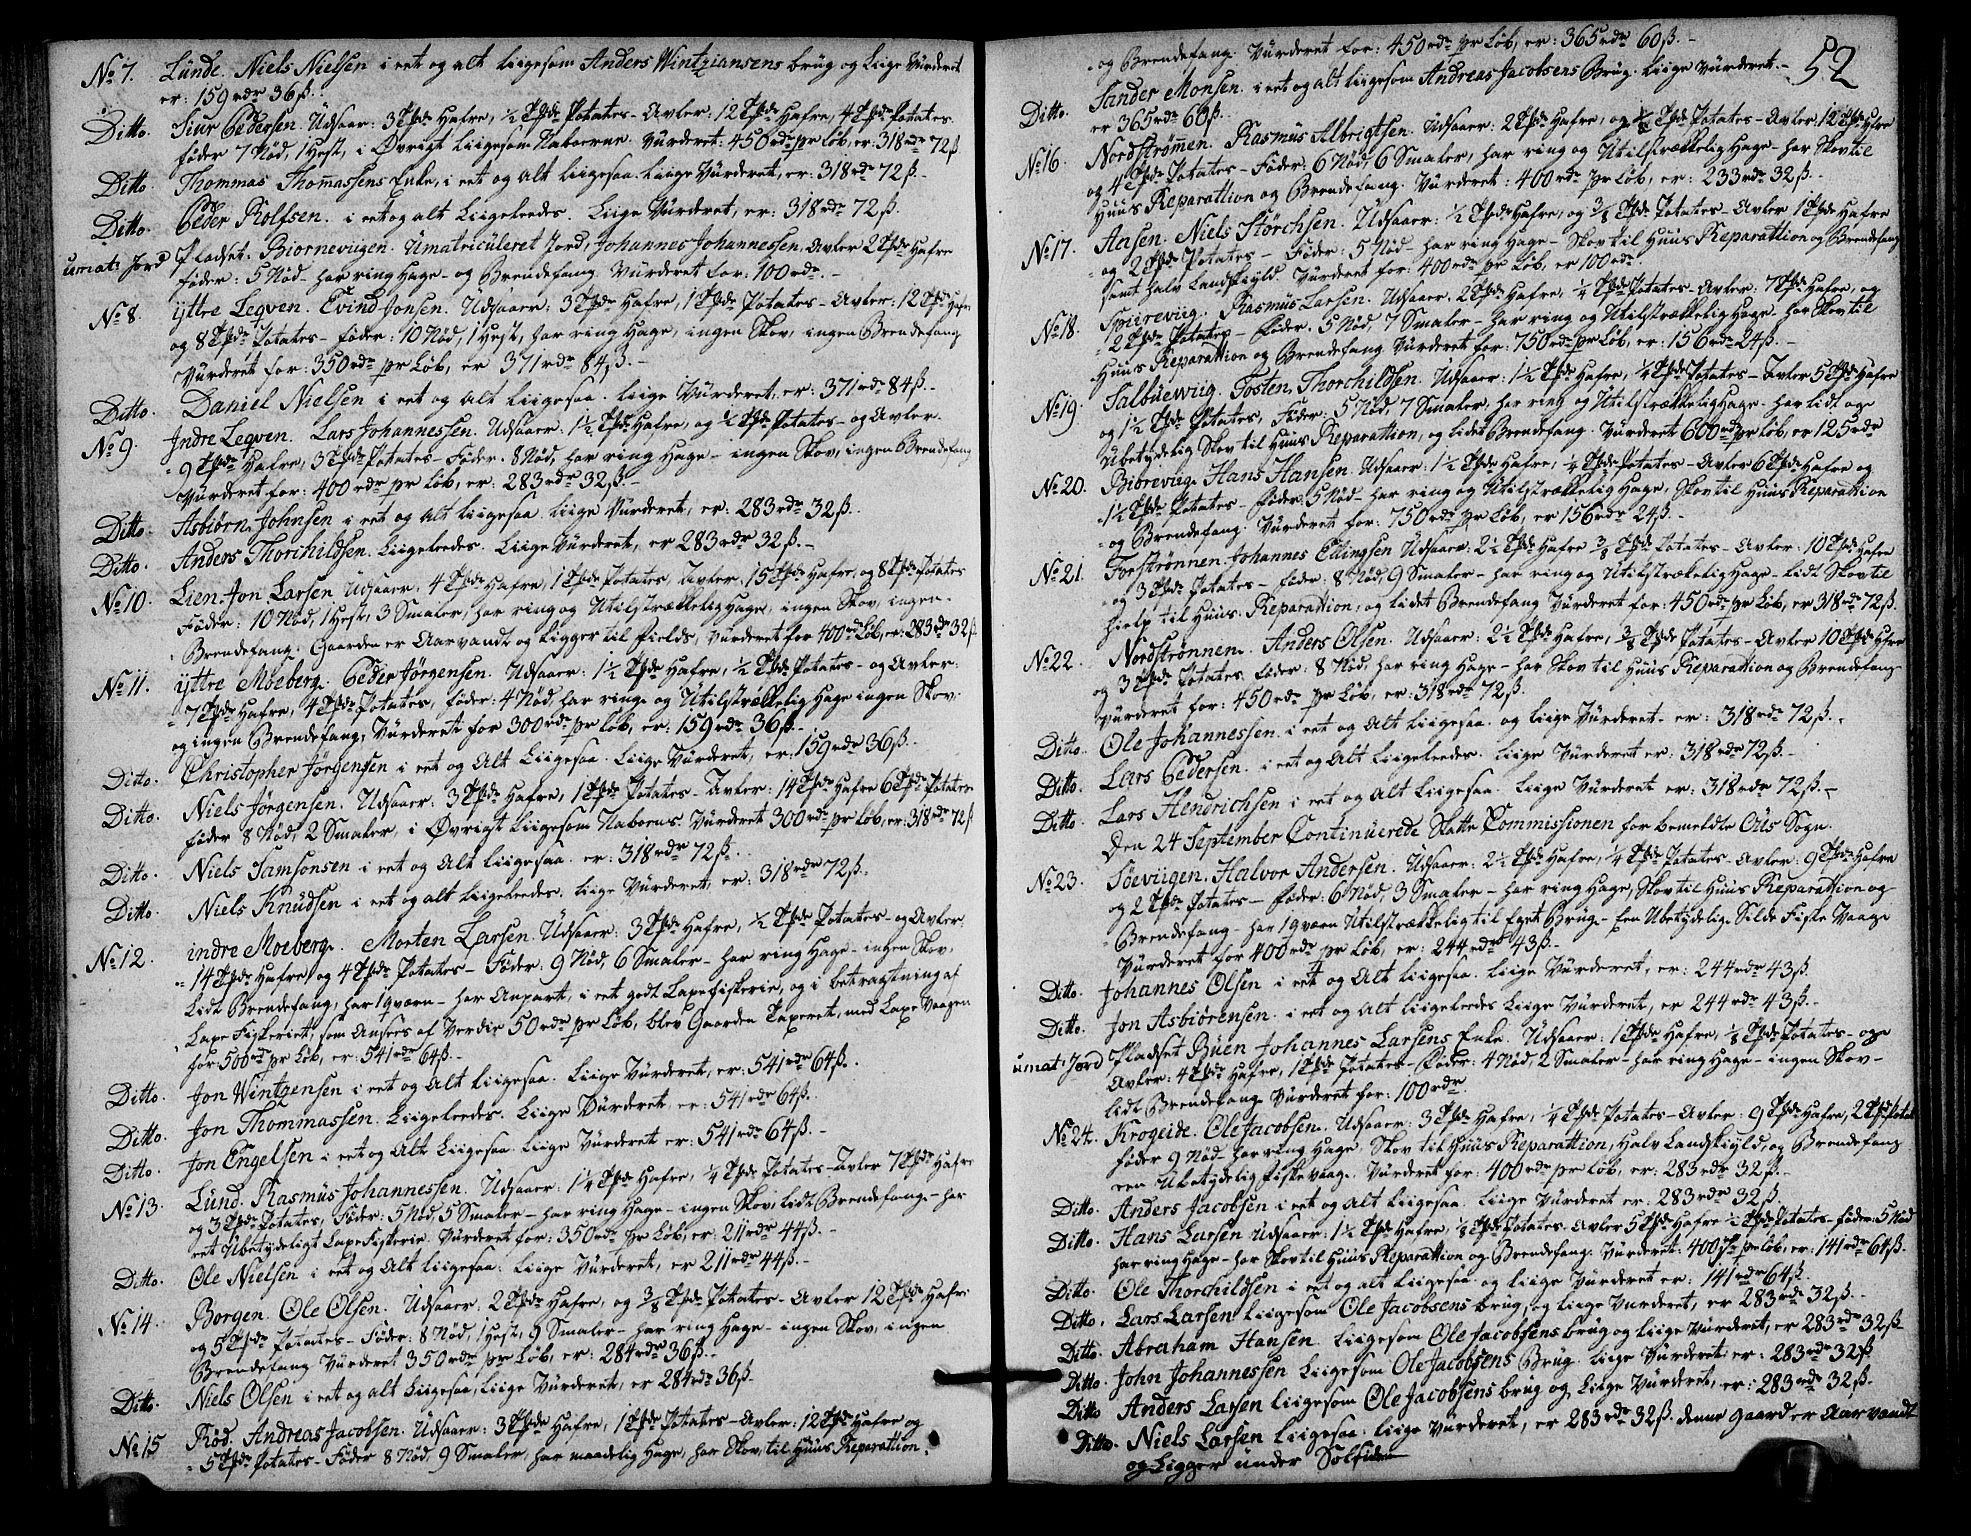 No 7. Lünde. Niels Nielsen i eet og alt liigesom Anders Wintziansens brug og Liige Vürderet
er: 159 rdr 36 ß.
Ditto. Siur Pedersen. Udsaar: 3 Tønde Hafre, ½ Tønde Potates - Avler: 12 Tønde Hafre, 4 Tønde Potates
föder 7 Nød, 1 Hest, i Øvrigt liigesom Naboerne. Vürderet: 450 rdr pr Løb, er: 318 rdr 72 ß
Ditto Thommas Thomassens Enke, i eet og alt liigesaa Liige Vürderet, er: 318 rdr 72 ß.
Ditto. Peder Rolfsen. i eet og alt Liigeleedes. Liige Vürderet, er: 318 rdr 72 ß.
umat: Jord Pladset: Biornevügen. Umatriculeret Jord, Johannes Johannessen, Avler 2 Tønde Hafre
föder: 5 Nød - har ring Hage - og Brendefang. Vürderet for: 100 rdr.
No 8. Yttre Leqven. Evind Jonsen. Udsaar: 3 Tønde Hafre, 1 Tønde Potates - Avler: 12 Tønde Hafre
og 8 Tønde Potates - föder: 10 Nød, 1 Hest, har ring Hage, ingen Skov, ingen Brendefang
Vürderet for: 350 rdr pr Løb, er 371 rdr 84 ß.
Ditto. Daniel Nielsen i eet og alt liigesaa. liige Vürderet, er: 371 rdr 84 ß.
No 9. Indre Leqven. Lars Johannessen. Udsaar: 1½ Tønde Hafre, og ½ Tønde Potates - og Avler.
9 Tønde Hafre, 3 Tønde Potates - Föder. 8 Nød, har ring Hage - ingen Skov, ingen Brendefang
Vürderet for: 400 rdr pr Løb, er: 283 rdr 32 ß.
Ditto. Asbiørn Johnsen i eet og alt liigesaa. liige Vürderet, er: 283 rdr 32 ß.
Ditto. Anders Thorchildsen. Liigeleedes. Liige Vürderet, er 283 rdr 32 ß.
No 10. Lien. Jon Larsen Udsaar, 4 Tønde Hafre, 1 Tønde Potates, Avler, 15 Tønde Hafre, og 8 Tønde Potates
Föder: 10 Nød, 1 Hest, 3 Smaler, har ring og Utilstrækkelig Hage, ingen Skov, ingen
Brendefang. Gaarden er Aarvandt og ligger til Fields, Vürderet for 400 rdr Løb, er: 283 rdr 32 ß
No 11. Yttre Moeberg. Peder Jørgensen. Udsaar: 1½ Tønde Hafre, ½ Tønde Potates - og Avler:
7 Tønde Hafre, 4 Tønde Potates, föder: 4 Nød, har ringe og Utilstrækkelig Hage ingen Skov,
og ingen Brendefang, Vürderet for 300 rdr pr Løb, er: 159 rdr 36 ß.
Ditto. Christopher Jørgensen i eet og Alt Liigesaa. Liige Vürderet, er: 159 rdr 36 ß.
Ditto. Niels Jørgensen. Udsaar: 3 Tønde Hafre, 1 Tønde Potates - Avler: 14 Tønde Hafre 6 Tønde Potates
föder 8 Nød, 2 Smaler, i Øvrigt Liigesom Naborns. Vürderet 300 rdr pr Løb, er: 318 rdr 72 ß
Ditto. Niels Samsonsen i eet og Alt liigesaa. er: 318 rdr 72 ß.
Ditto. Niels Knudsen i eet og alt liigeleedes. liige Vürderet, er: 318 rdr 72 ß.
No 12. indre Moeberg. Morten Larsen. Udsaar: 3 Tønde Hafre, ½ Tønde Potates - og Avler:
14 Tønde Hafre og 4 Tønde Potates - Föder: 9 Nød, 6 Smaler - har ring Hage - ingen Skov.
Lidt Brendefang, har 1 qværn - har Anpart, i eet godt Laxe fiskerie, og i betragtning af
Laxe Fiskeriet, som Ansees af Verdie 50 rdr pr Løb, blev Gaarden Taxeret, med Laxe Vaagen
for 500 rdr pr Løb, er: 541 rdr 64 ß.
Ditto. Jon Wintzensen i eet og Alt liigesaa. Liige Vürderet, er: 541 rdr 64 ß.
Ditto. Jon Thommassen. Liigeleedes. Liige Vürderet, er: 541 rdr 64 ß.
Ditto. Jon Engelsen i eet og Alt Liigesaa. liige Vürderet er: 541 rdr 64 ß.
No 13. Lünd. Rasmus Johannessen. Udsaar: 1¼ Tønde Hafre, ¼ Tønde Potates - Avler 7 Tønde Hafre
og 3 Tønde Potates, Föder: 5 Nød, 5 Smaler - har ring Hage - ingen Skov, lidt Brendefang - har
eet Ubetydeligt Laxe Fiskerie. Vürderet for: 350 rdr pr Løb, er: 211 rdr 44 ß.
Ditto. Ole Nielsen i eet og Alt liigesaa. liige Vürderet, er 211 rdr 44 ß.
No 14. Borgen. Ole Olsen. Udsaar: 2 Tønde Hafre, og 3/8 Tønde Potates - Avler 12 Tønde Hafre
og 5 Tønde Potates - Föder: 8 Nød, 1 Hest, 9 Smaler - har ring Hage - ingen Skov, ingen
Brendefang Vürderet 350 rdr pr Løb, er: 284 rdr 36 ß.
Ditto. Niels Olsen i eet og alt Liigesaa, Liige Vürderet, er 284 rdr 36 ß.
No 15 Rød. Andreas Jacobsen. Udsaar: 3 Tønde Hafre, 1 Tønde Potates - Avler: 12 Tønde Hafre og
5 Tønde Potates - Föder 8 Nød, 9 Smaler, har maadelig Hage, har Skov, til Huus Reparation,
52
og Brendefang. Vürderet for: 450 rdr pr Løb, er: 365 rdr 60 ß.
Ditto. Sander Monsen. i eet og alt liigesom Andreas Jacobsens Brüg. Liige Vürderet.
er 365 rdr 60 ß.
No 16. Nordstrømen. Rasmus Albrigtsen. Udsaar: 2 Tønde Hafre, og Tønde Potates - Avler, 12 Tønde Hafre
og 4 Tønde Potates - Föder: 6 Nød, 6 Smaler, har ring og Utilstrækkelig Hage - har Skov til
Huus Reparattion og Brendefang. Vürderet: 400 rdr pr Løb, er: 233 rdr 32 ß.
No 17. Aasen. Niels Störchsen. Udsaar: ½ Tønde Hafre, og 3/8 Tønde Potates - Avler 1 Tønde Hafre
og 2 Tønde Potates - Föder: 5 Nød - har ring Hage - Skov til Huus Reparattion og Brendefang
samt halv Landskyld. Vürderet for: 400 rdr pr Løb, er 100 rdr.
No 18. Spürevüg. Rasmus Larsen. Udsaar. 2 Tønde Hafre, ¼ Tønde Potates - Avler: 7 Tønde Hafre, og
2 Tønde Potates - Föder. 5 Nød, 7 Smaler - har ring og Utilstrækkelig Hage - har Skov til
Huus Reparattion og Brendefang Vürderet for: 750 rdr pr Løb, er: 156 rdr 24 ß.
No 19. Salbuevüg. Tosten Thorchildsen. Udsaar: 1½ Tønde Hafre, ¼ Tønde Potates - Avler 5 Tønde Hafre
og 1½ Tønde Potates, Föder: 5 Nød, 7 Smaler, har ring og Utilstrækkelig Hage - har lidt og
Ubetydelig Skov til Huus Reparattion, og lidet Brendefang. Vürderet 600 rdr pr Løb, er 125 rdr
No 20. Bibrevüg. Hans Hansen. Udsaar: 1½ Tønde Hafre, ¼ Tønde Potates - Avler 6 Tønde Hafre og
1½ Tønde Potates - Föder: 5 Nød - har ring og Utilstrækkelig Hage, Skov til Huus Reparattion
og Brendefang. Vürderet for: 750 rdr pr Løb, er 156 rdr 24 ß.
No 21. Forstrønnen. Johannes Ellingsen Udsaar: 2½ Tønde Hafre 3/8 Tønde Potates - Avler: 10 Tønde Hafre
og 3 Tønde Potates - föder: 8 Nød, 9 Smaler - har ring og Utilstrækelig Hage - lidt Skov til
hielp til Huus: Reparattion, og lidet Brendefang Vürderet for: 450 rdr pr Løb, er 318 rdr 72 ß.
No 22. Nordstrønnen. Anders Olsen. Udsaar: 2½ Tønde Hafre, 3/8 Tønde Potates - Avler 10 Tønde Hafre
og 3 Tønde Potates. föder: 8 Nød, har ring Hage - har Skov til Huus Reparattion og Brendefang
Vürderet for: 450 rdr pr Løb, er: 318 rdr 72 ß.
Ditto. Ole Johannessen. i eet og Alt Liigesaa. og liige Vürderet - er: 318 rdr 72 ß.
Ditto. Lars Pedersen. i eet og Alt Liigeleedes. liige Vürderet er: 318 rdr 72 ß.
Ditto. Lars Hendrichsen i eet og Alt Liigesaa. liige Vürderet er: 318 rdr 72 ß.
Den 24 September Continuerede Skatte Commissionen for bemeldte Ous Sogn.
No 23. Söevügen. Halvor Andersen. Udsaar: 2½ Tønde Hafre, ¼ Tønde Potates - Avler: 9 Tønde Hafre
og 2 Tønde Potates - föder: 6 Nød, 3 Smaler - har ring Hage, Skov til Huus Reparattion og
Brendefang - har 1 qværn Utilstrækkelig til Eget Brüg - Een Ubetydelig Silde Fiske Vaage
Vürderet for 400 rdr pr Løb, er: 244 rdr 43 ß.
Ditto. Johannes Olsen i eet og Alt Liigesaa. liige Vürderet, er: 244 rdr 43 ß.
Ditto. Jon Asbiörensen. i eet og Alt liigeleedes Liige Vürderet, er 244 rdr 43 ß.
umat: Jord Pladset Büen Johannes Larsens Enke. Udsaar: 1 Tønde Hafre, ⅛ Tønde Potates - og
Avler: 4 Tønde Hafre, 1 Tønde Potates - Föder: 4 Nød, 2 Smaler - har ring Hage - ingen Skov -
lidt Brendefang Vürderet for: 100 rdr.
No 24. Krogeide. Ole Jacobsen. Udsaar: 3 Tønde Hafre, ¼ Tønde Potates - Avler: 9 Tønde Hafre, 2 Tønde Potates
föder 9 Nød - har ring Hage, Skov til Huus Reparattion, Halv Landskiyld, og Brendefang
een Ubetydelig Fiske Vaag. Vürderet for: 400 rdr pr Løb, er: 283 rdr 32 ß.
Ditto. Anders Jacobsen i eet og Alt Liigesaa. liige Vürderet er: 283 rdr 32 ß.
Ditto. Hans Larsen Udsaar: 1½ Tønde Hafre, ⅛ Tønde Potates - Avler 5 Tønde Hafre ½ Tønde Potates - föder: 5 Nød
har ring Hage - har Skov til Huus Reparattion og Brendefang. Vürderet: 400 rdr pr Løb, er: 141 rdr 64 ß.
Ditto. Ole Thorchildsen i eet og alt Liigesaa og Liige Vürderet er: 141 rdr 64 ß.
Ditto. Lars Larsen liigesom Ole Jacobsens brüg, og Liige Vürderet, er 283 rdr 32 ß.
Ditto. Abraham Hansen. Liigesom Ole Jacobsens brüg og Liige Vürderet, er 283 rdr 32 ß.
Ditto. John Johannessen Liigesom Ole Jacobsens Brüg. liige Vürderet er: 283 rdr 32 ß.
Ditto Anders Larsen liigesom Ole Jacobsens brüg og Liige Vürderet, er: 283 rdr 32 ß.
Ditto. Niels Larsen Liigesaa. Liige Vürderet, er 283 rdr 32 ß. denne Gaard er Aarvandt
og Ligger under Solsiden